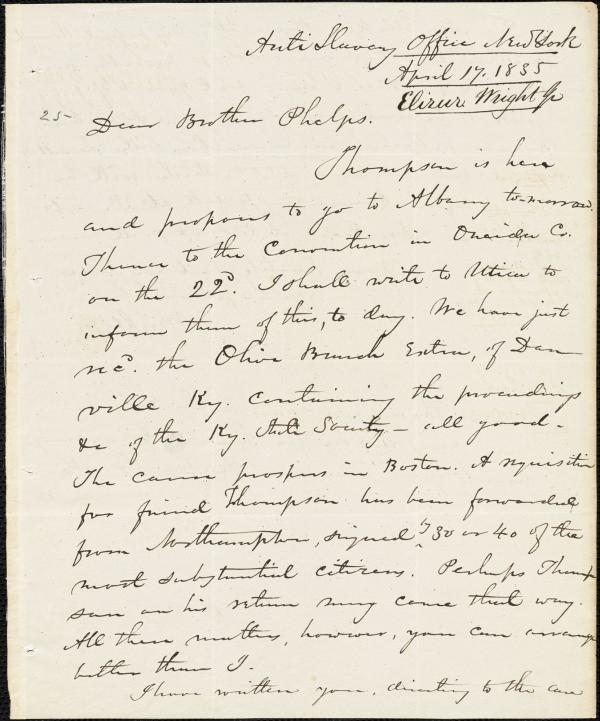 Anti Slavery Office New York
April 17. 1835
Elizur Wright Jr
25-
Dear Brother Phelps.
Thompson is here
and proposes to go to Albany to-morrow.
Thence to the Convention in Oneida Co.
on the 22d. I shall write to Utica to
inform them of this, to day. We have just
recd. the Olive Branch Extra, of Dan-
ville Ky. containing the proceedings
&c of the Ky. Anti Society - all good.
The cause prospers in Boston. A requisition
for friend Thompson has been forwarded
from Northampton, signed by 30 or 40 of the
most substantial citizens. Perhaps Thomp
son on his return may come that way.
All these matters, however, you can arrange
better than I.
I have written you, directing to the care